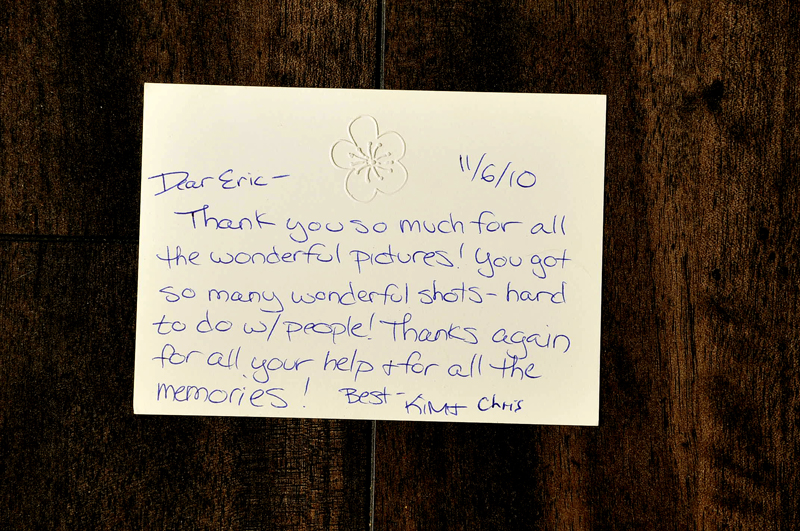 11/6/10
Dear Eric-
Thank you so much for all
the wonderful pictures! You got
so many wonderful shots - hard
to do w/people! Thanks again
for all your help + for all the
memories! Best-
Kim + Chris